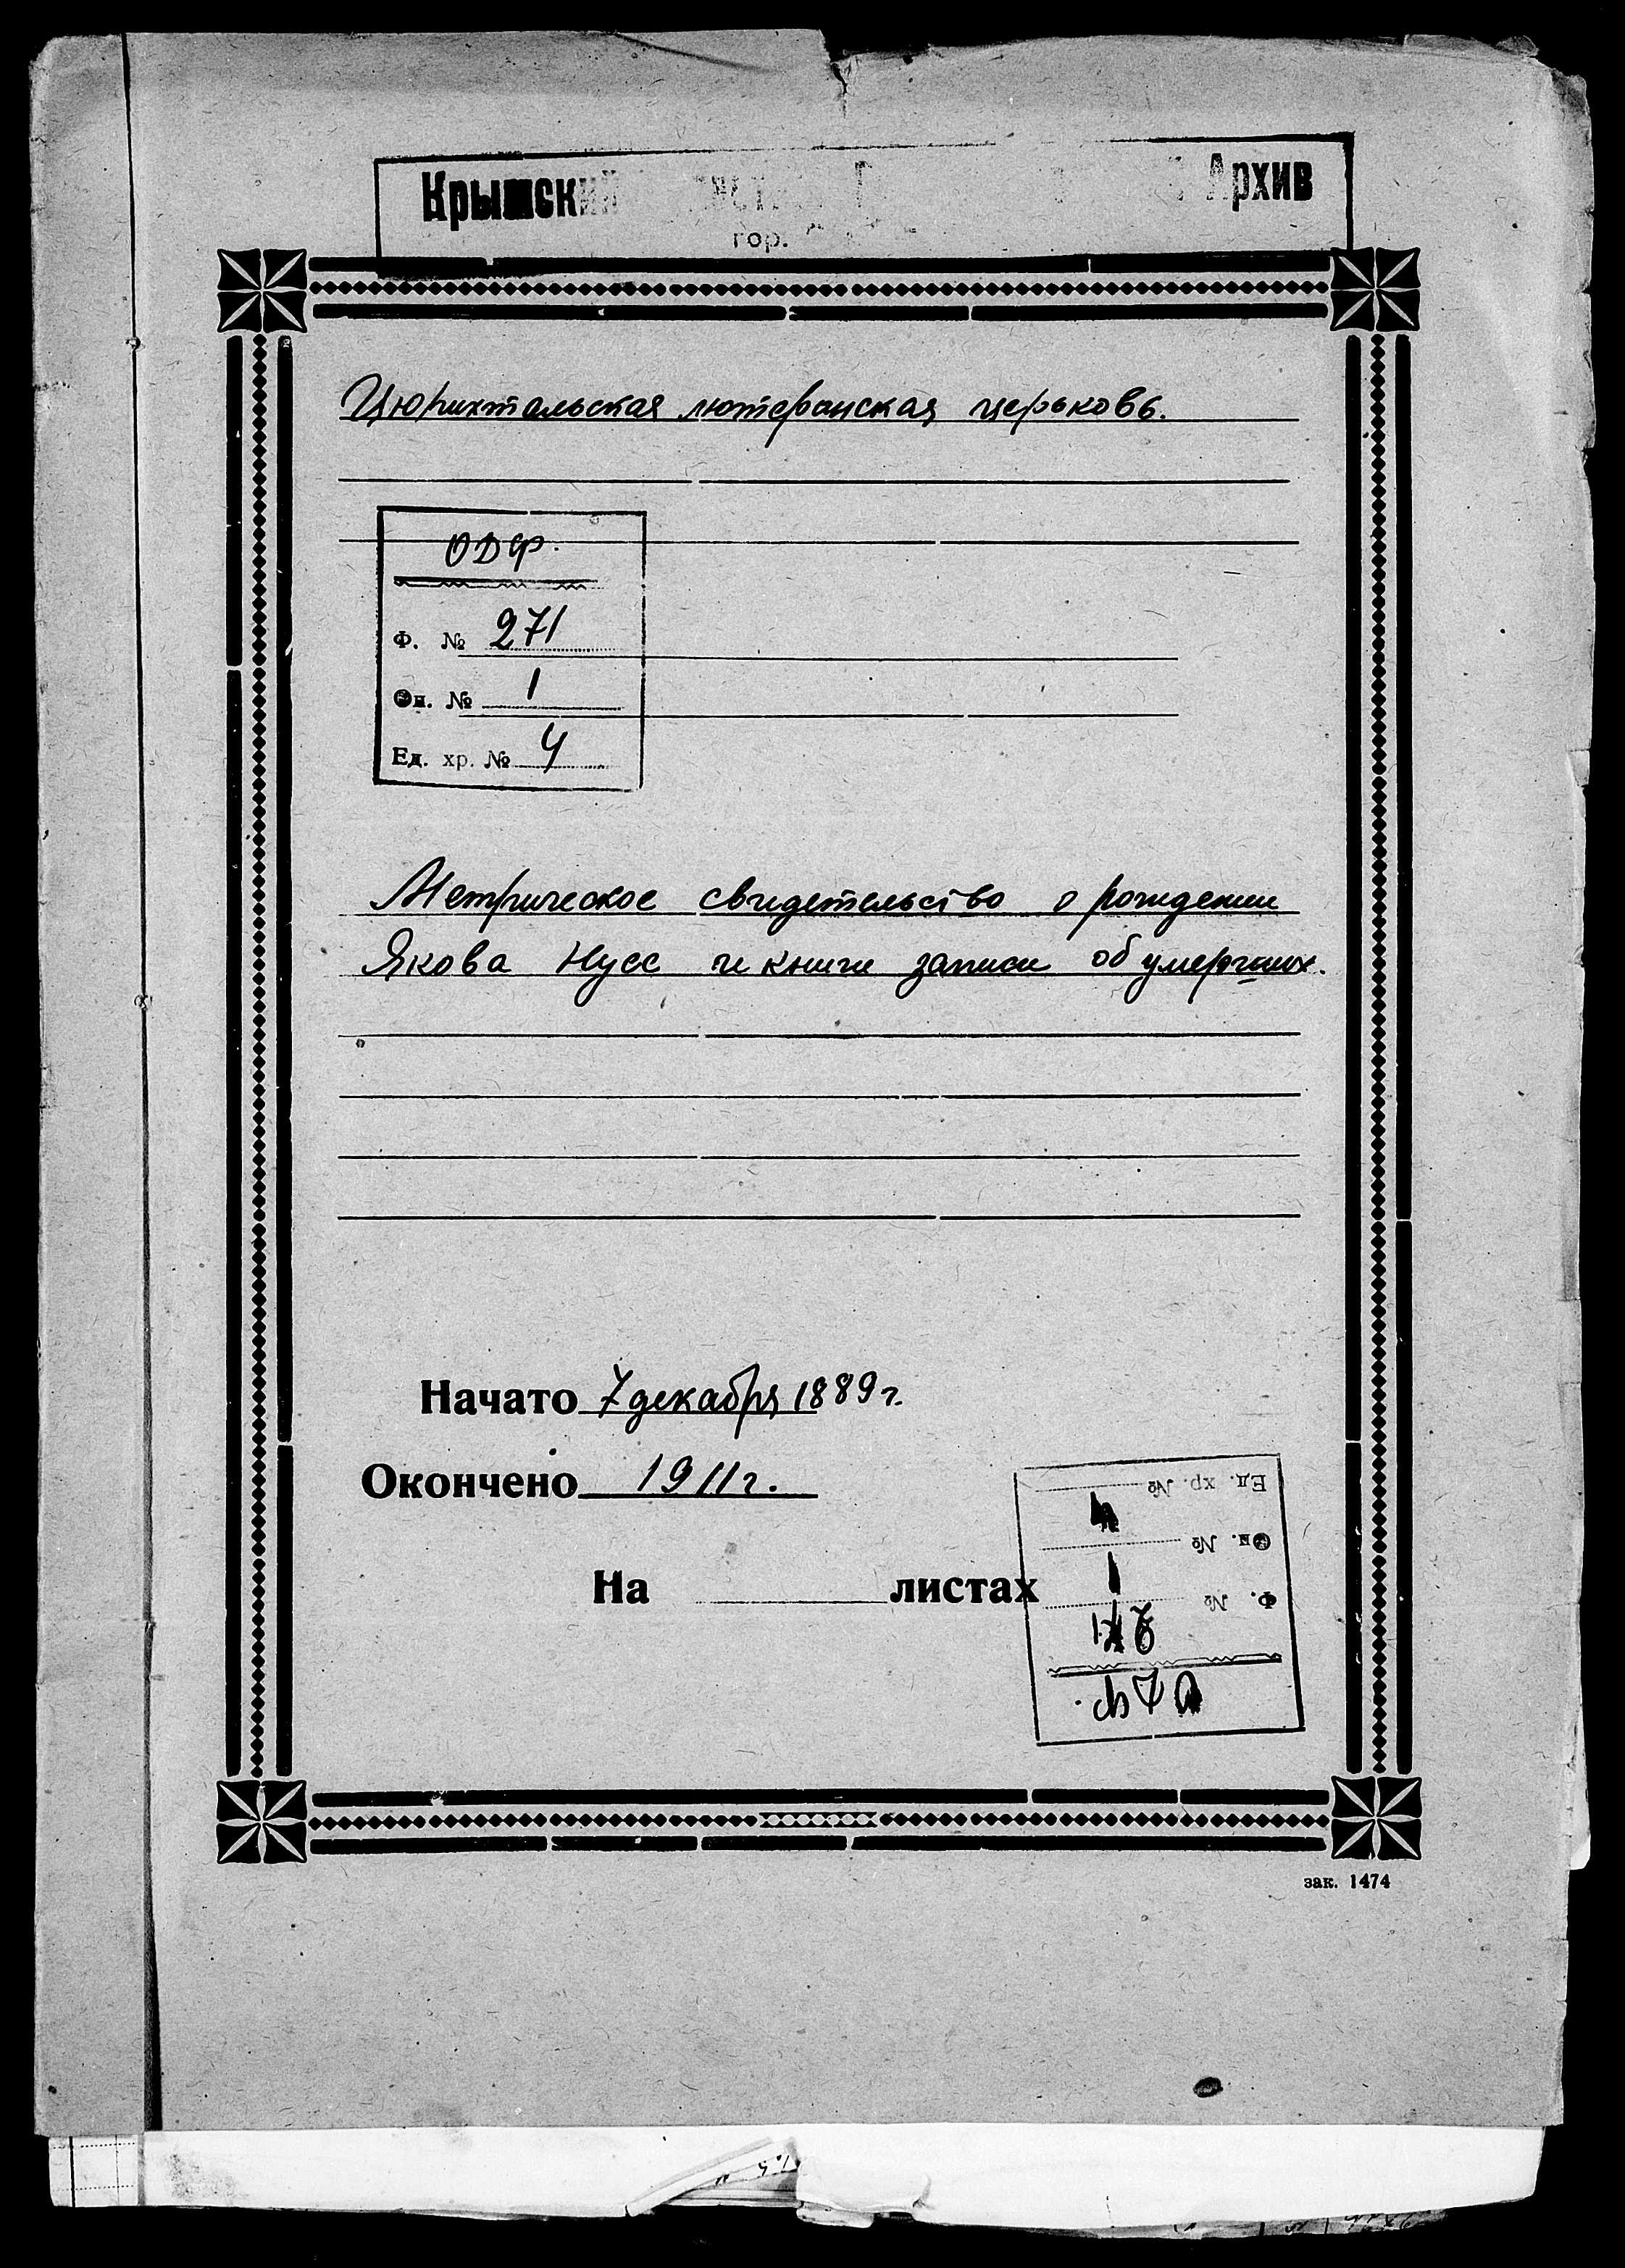 Крымский Архив
гор.
Цюрихтальская лютеранская церьковь.
ОДФ.
Ф. № 271
Оп. № 1
Ед. хр. № 4
Метрическое свидетельство о рождении
Якова Нусс и книги записи об умерших.
Начато 7 декабря 1889 г.
Окончено 1911 г.
На листах
Ед. хр. № 4
Оп. № 1
Ф. № 271
ОДФ.
зак. 1474